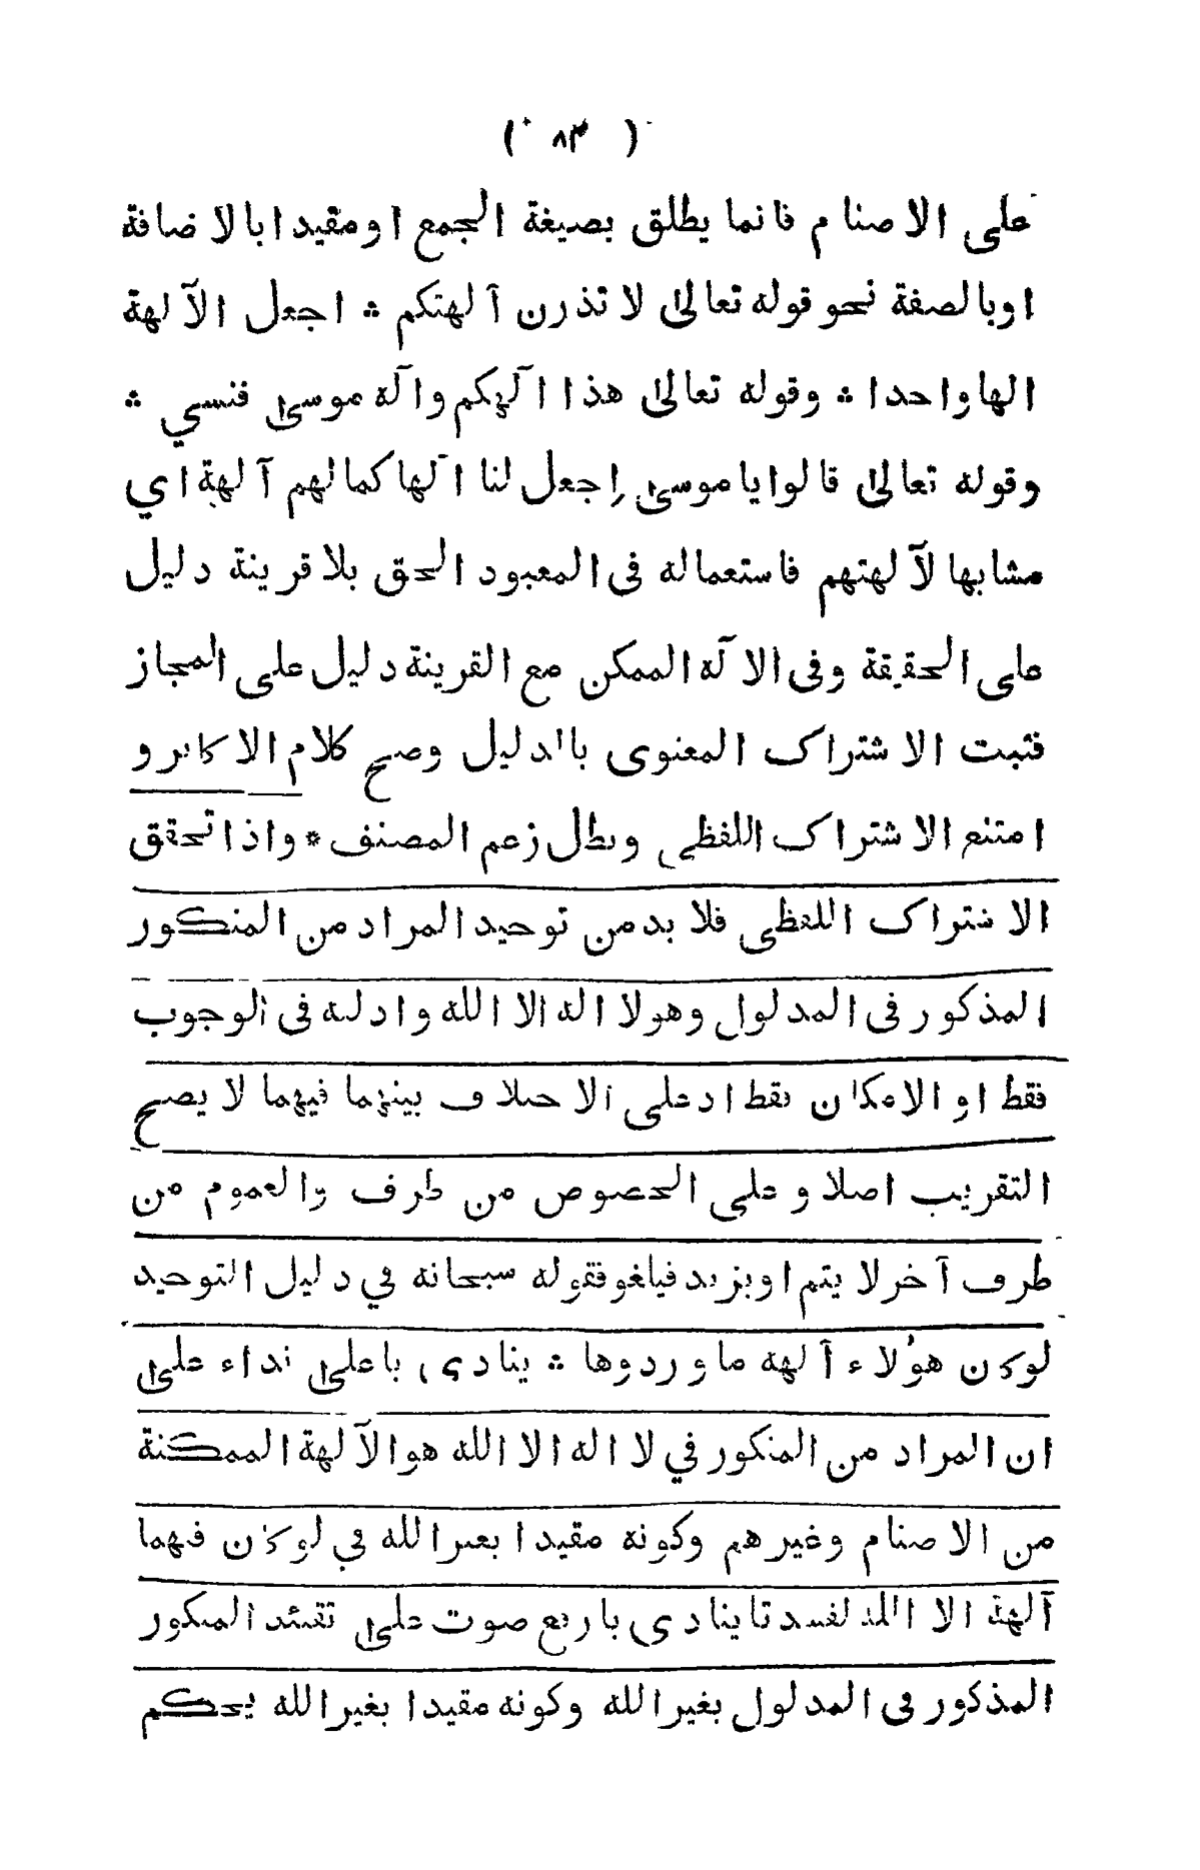 ( ۸۳ )
على الاصنام فانما يطلق بصيغة الجمع اومقيدا بالاضافة
اوبالصفة نحو قوله تعالى لا تذرن آلهتكم ؞ اجعل الآلهة
الها واحدا ؞ وقوله تعالى هذا الٓهكم والٓه موسى فنسي ؞
وقوله تعالى قالوا ياموسى اجعل لنا الٓها كمالهم آلهة اي
مشابها لآلهتهم فاستعماله فى المعبود الحق بلا قرينة دليل
على الحقيقة وفى الالٓه الممكن مع القرينة دليل على المجاز
فثبت الاشتراك المعنوى بالدليل وصح كلام الاكابر و
امتنع الاشتراك اللفظى وبطل زعم المصنف * واذا تحقق
الاشتراك اللفظى فلا بد من توحيد المراد من المنكور
المذكور فى المدلول وهو لا اله الا الله وادلته فى الوجوب
فقط او الامكان فقط اذ على الاختلاف بينهما فيهما لا يصح
التقريب اصلا و على الخصوص من طرف والعموم من
طرف آخر لا يتم اويزيد فيلغو فقوله سبحانه في دليل التوحيد
لوكان هؤلاء آلهة ما وردوها ؞ ينادى باعلى نداء على
ان المراد من المنكور في لا اله الا الله هو الآلهة الممكنة
من الاصنام وغيرهم وكونه مقيدا بغير الله في لوكان فيهما
آلهة الا الله لفسدتا ينادى بارفع صوت على تقييد المنكور
المذكور فى المدلول بغير الله وكونه مقيدا بغير الله يحكم